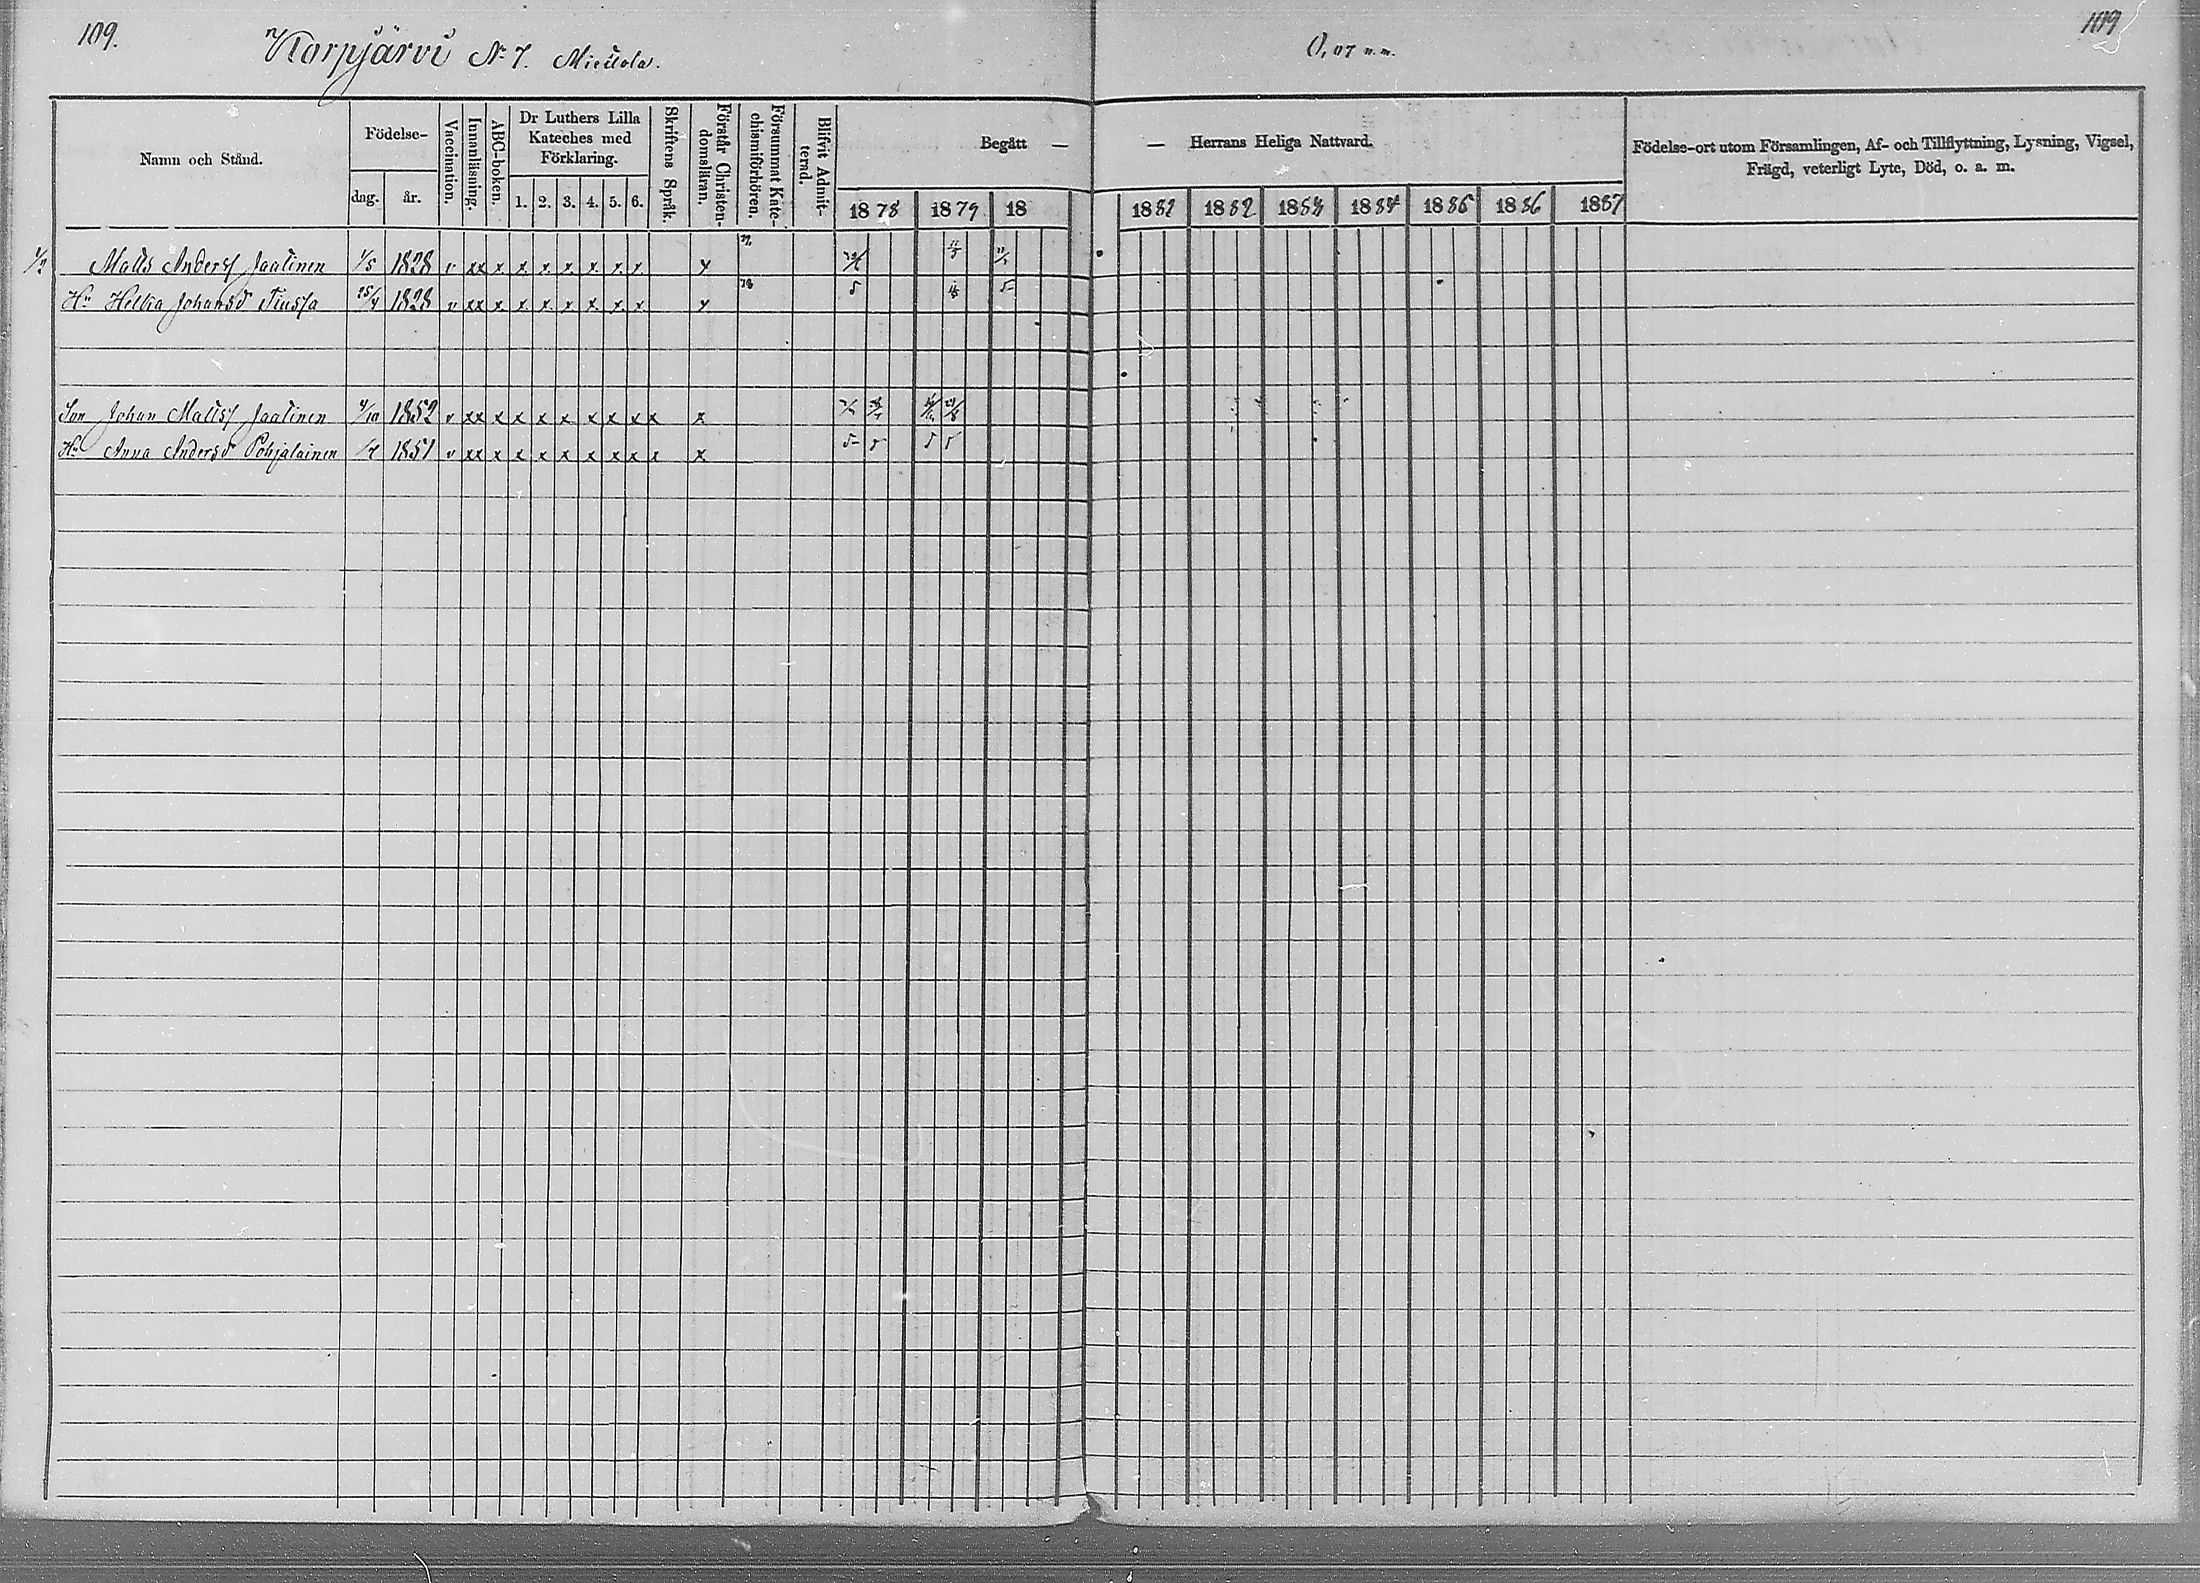 109.
Korpjärvi No 7. Miettola.
0,07 n.m.
109
Namn och Stånd.
Födelse-
dag.
år.
Vaccination.
Innanläsning.
ABC-boken.
Dr Luthers Lilla Kateches med Förklaring.
1. 2. 3. 4. 5. 6.
Skriftens Språk.
Förstår Christendomsläran.
Försummat Katechismiförhören.
Blifvit Admitterad.
Begått — — Herrans Heliga Nattvard.
1878 1879 18 1881 1882 1883 1884 1885 1886 1887
Födelse-ort utom Församlingen, Af- och Tillflyttning, Lysning, Vigsel,
Frägd, veterligt Lyte, Död, o. a. m.
1/2 Matts Anderss Jaatinen 1/5 1828 v xx x x x x x x x x
Hu Helka Johansd Tiussa 25/4 1828 v xx x x x x x x x x
Son Johan Mattss Jaatinen 4/10 1852 v xx x x x x x x x x x
Hu Anna Andersd Pohjalainen 1851 v xx x x x x x x x x x